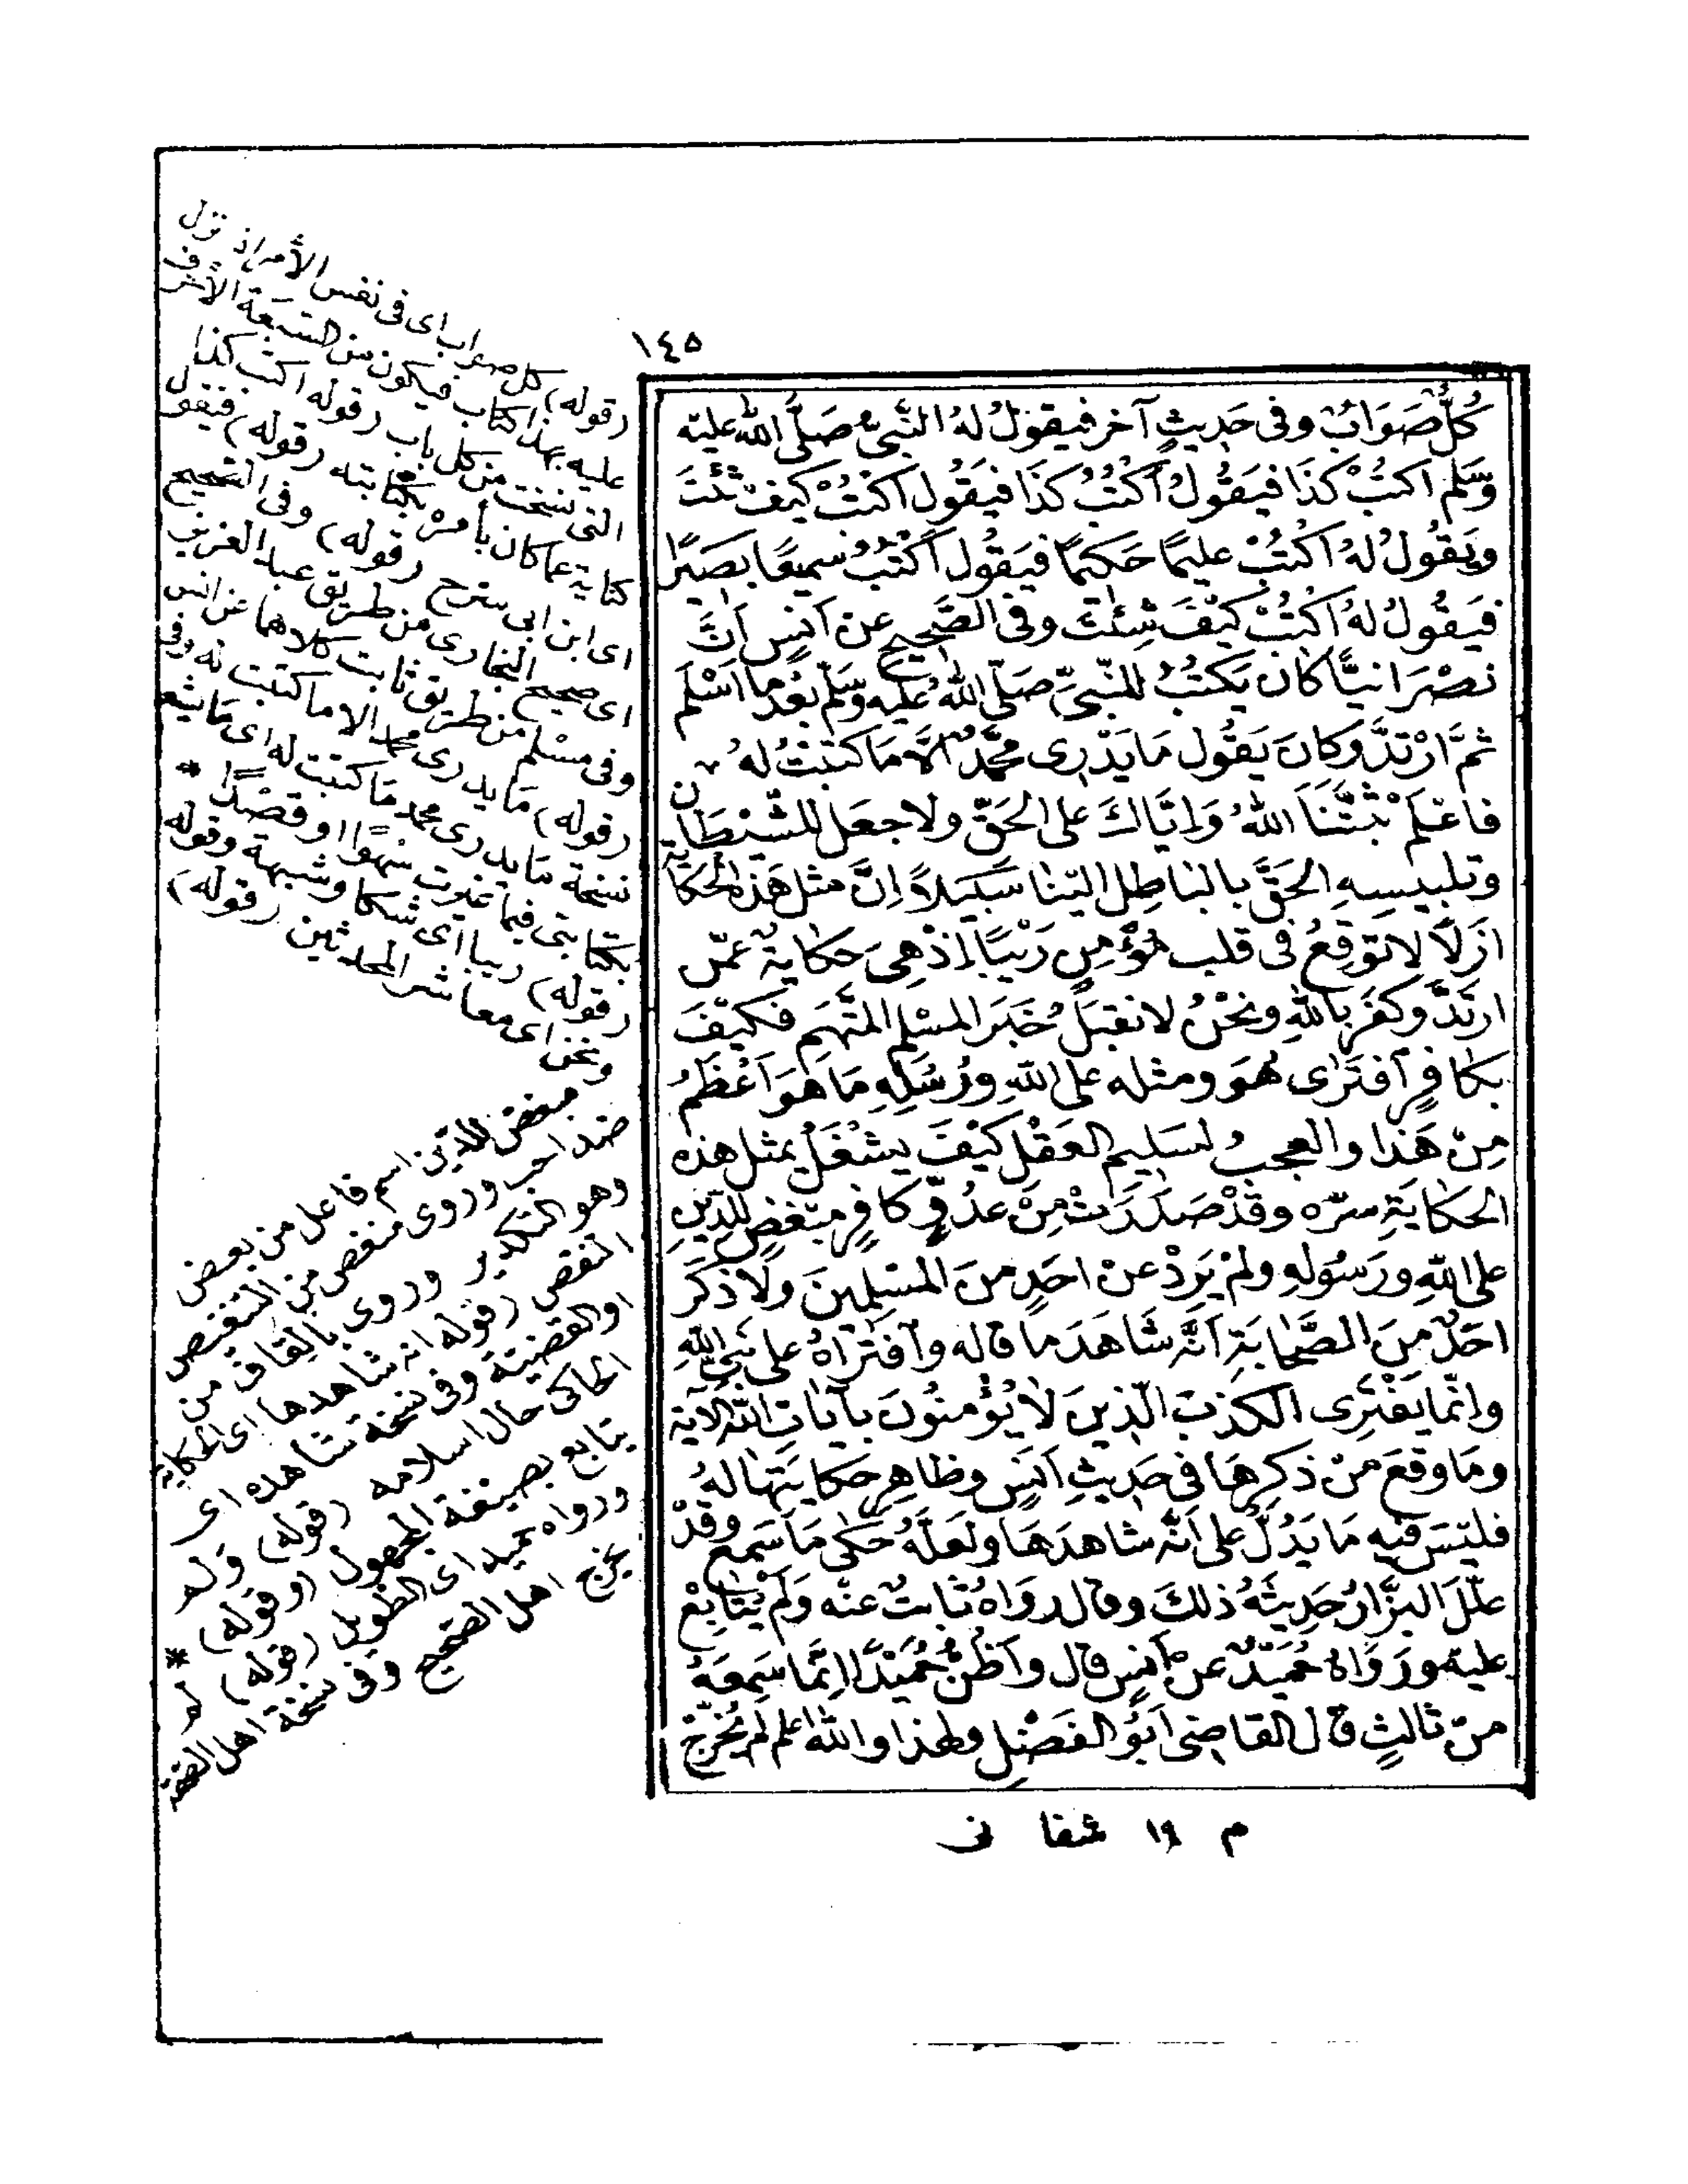 ١٤٥
كُلٌّ صَوَابٌ وفى حَدِيثٍ آخر فيقولُ لهُ النَّبىُّ صَلَّى اللّٰه عليه
وَسَلم اكتُبْ كَذَا فيَقُولُ أكتُبُ كذَا فيَقُول اكتُبْ كيفَ شِئتَ
ويَقُولُ لهُ اكتُبْ عليمًا حَكيمًا فيَقُول أكتُبُ سميعًا بَصيرًا
فيَقُولُ لهُ اكتُبْ كيْفَ شِئتَ وفى الصَّحيحِ عن اَنسٍ اَنَّ
نصْرَانيًّا كان يَكتُبُ للنّبىِّ صَلّى اللّٰهُ عليْهِ وَسَلّم بعْدَ ما اَسْلَم
ثمَّ ارْتدَّ وكانَ يَقُول مَا يَدْرِى محمَّدٌ الاَّ مَا كتبْتُ لهُ
فاعْلَم ثبَّتَنَا اللّٰهُ وَاِيَّاكَ على الحَقِّ ولا جعَل للشّيْطَان
وتلبيسِهِ الحَقَّ بالبَاطِل اليْنا سَبيلاً اِنَّ مثل هَذِهِ الحكَاية
اوّلاً لا توقِعُ فى قلب مُؤْمِنٍ رَيْبًا اِذْ هِىَ حكايةٌ عمّن
ارتَدَّ وكفَر باللّٰهِ ونحْنُ لا نقبَلُ خَبَر المسْلِم المتَّهَم فكيْفَ
بكافِرٍ افتَرَى هُوَ ومثله على اللّٰهِ ورُسُلِهِ مَا هُوَ اَعْظَمُ
مِنْ هَذا والعجبُ لسَليم العَقْل كيْفَ يشْغَلُ بمثل هذه
الحكايَةِ سرّه وقَدْ صَدَرَتْ مِنْ عدُوٍّ كافِرٍ مبْغضٍ للدّينِ
على اللّٰهِ ورَسُولهِ ولمْ يَرِدْ عن احَدٍ منَ المسْلِمينَ ولا ذكَر
احَدٌ منَ الصَّحَابَةِ اَنَّهُ شَاهَدَ ما قاله وافترَاهُ على نَبىِّ اللّٰهِ
وانّما يَفْتَرِى الكذبَ الّذينَ لا يُؤْمنُونَ بآيَاتِ اللّٰه الآية
ومَا وقعَ منْ ذكرِهَا فى حَدِيثِ اَنسٍ وظاهِرِ حكايَتِهَا لهُ
فليْسَ فيْهِ مَا يَدُلّ على اَنَّهُ شاهدَهَا ولعَلّهُ حَكى مَا سَمِع وقَدْ
علّلَ البزّارُ حَدِيثَهُ ذلكَ وقال رواهُ ثابتٌ عنْه وَلَمْ يُتَابَعْ
عليه ورَوَاهُ حُمَيْدٌ عن اَنسٍ قال واَظُنُّ حُمَيْدًا اِنّمَا سَمِعَهُ
منْ ثالثٍ قال القاضِى اَبُو الفَضْلِ ولهذا واللّٰه اعلم لم يُخَرِّجْ
م ١٩ شفا نى
(قوله) كل صواب اى فى نفس الأمر اذ نزل
عليه بهذا كتاب فيكون من السبعة الأحرف
التى نسخت من كل باب (قوله) اكتب كذا
كناية عما كان يأمره بكتابته (قوله) فيقول
اى ابن ابى سرح (قوله) وفى الصحيح
اى صحيح البخارى من طريق عبد العزيز
وفى مسلم من طريق ثابت كلاهما عن انس
(قوله) ما يدرى محمد الا ما كتبت له وفى
نسخة ما يدرى محمد ما كتبت له اى ما يشعر
بكتابتى فيما غيرت سهوا او قصدا *
(قوله) ريبا اى شكا وشبهة وقوله
ونحن اى معاشر المحدثين (قوله)
مبغض للدين اسم فاعل من بغض
ضد احب وروى منغص من التنغيص
وهو التكدير وروى بالقاف من
النقص (قوله انه شاهدها اى الحكاية
او القضية وفى نسخة شاهده اى
الحاكى حال اسلامه (قوله) ولم
يتابع بصيغة المجهول (وقوله) *
ورواه حميد اى الطويل (قوله) لم
يخرج اهل الصحيح وفى نسخة اهل الصحة